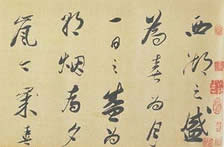 西湖之盛
為春為月
一日之盛為
朝烟為夕
嵐今歲春